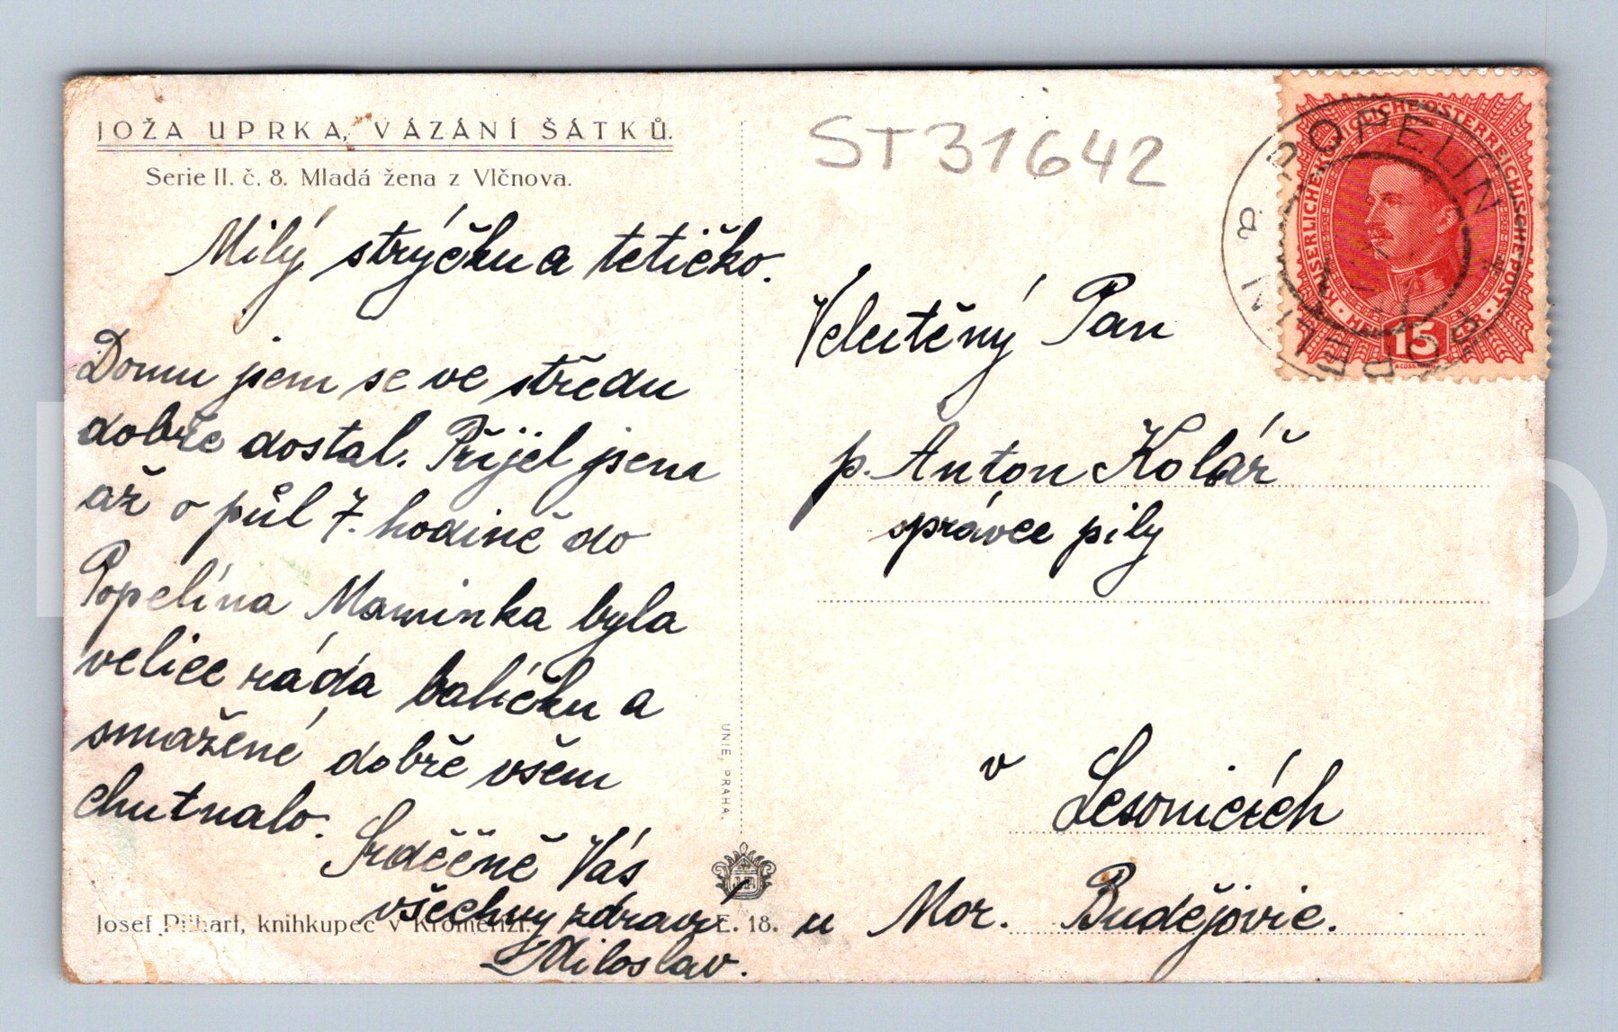 JOŽA UPRKA, VÁZÁNÍ ŠÁTKŮ.
Serie II. č. 8. Mladá žena z Vlčnova.
Milý strýčku a tetičko.
Domu jsem se ve středu
dobře dostal. Přijel jsem
až o půl 7. hodině do
Popelína Maminka byla
velice ráda balíčku a
smažené dobře všem
chutnalo.
Srdečně Vás
všechny zdraví
Miloslav.
Josef knihkupec v Kroměříži.
E. 18.
UNIE, PRAHA.
ST31642
KAISERLICHE KÖNIGLICHE ÖSTERREICHISCHE POST
15
POPELIN
Velectěný Pan
p. Anton Kolář
správce pily
v Lesonicích
u Mor. Budějovic.